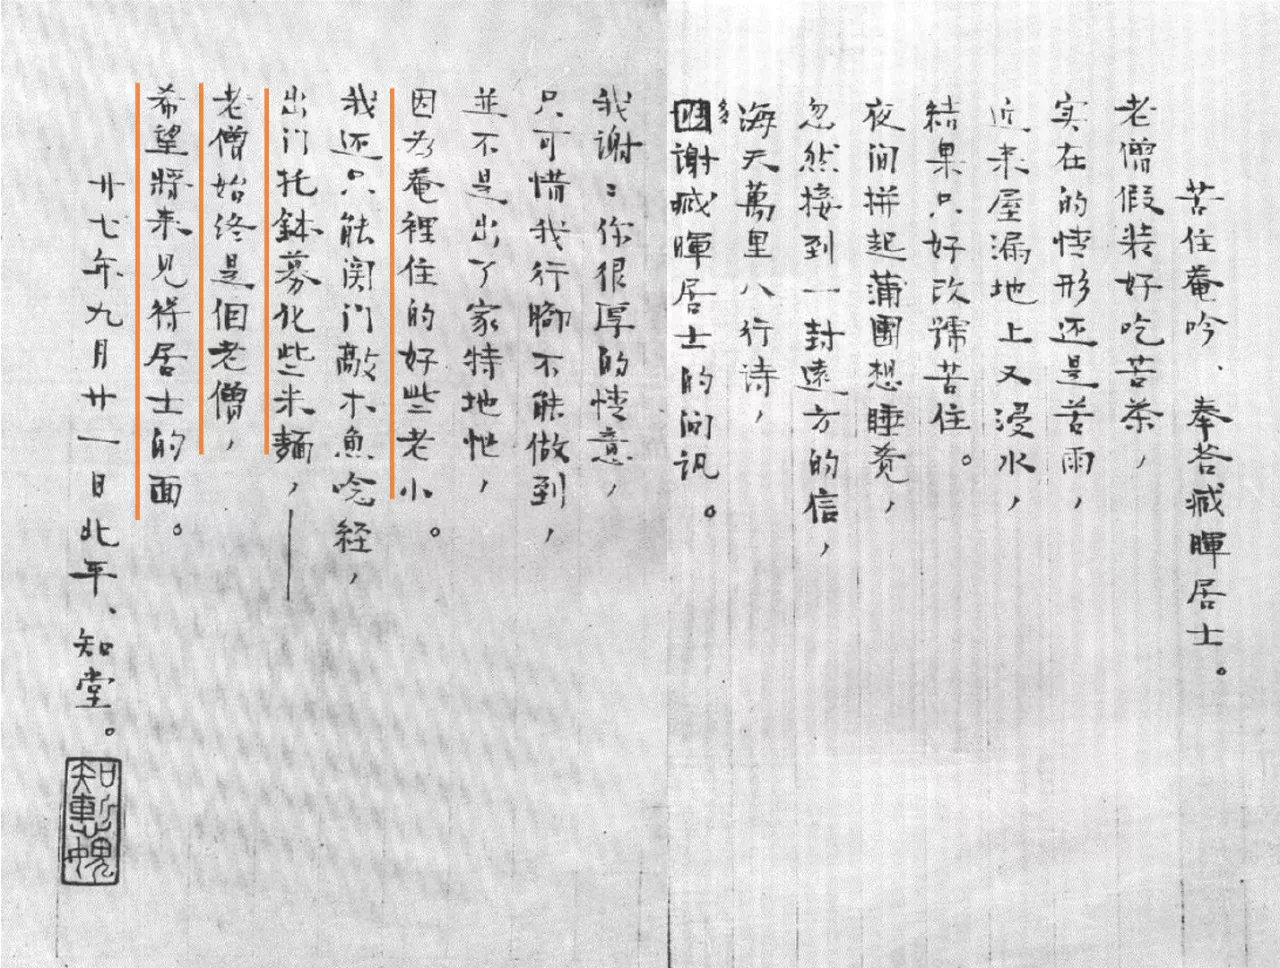 苦住菴吟、奉答臧暉居士。
老僧假装好吃苦茶，
实在的情形还是苦雨，
近来屋漏地上又浸水，
結果只好改號苦住。
夜间拼起蒲團想睡觉，
忽然接到一封遠方的信，
海天萬里八行诗，
多謝臧暉居士的问讯。
我謝〻你很厚的情意，
只可惜我行脚不能做到，
並不是出了家特地忙，
因为菴裡住的好些老小。
我还只能関门敲木魚唸経，
出门托鉢募化些米麵，——
老僧始终是個老僧，
希望將来见得居士的面。
廿七年九月廿一日北平、知堂。
知慚愧